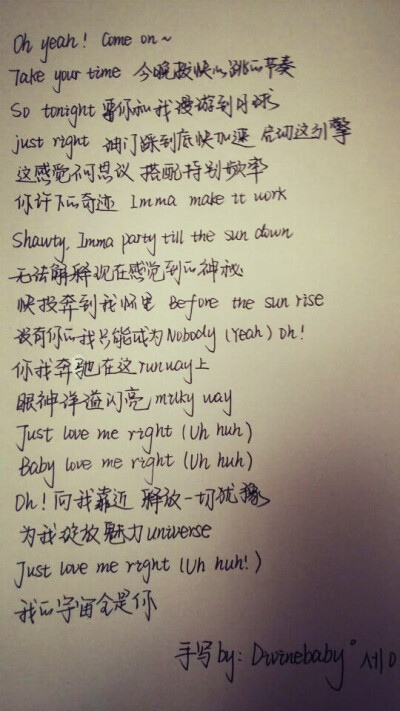 Oh yeah! Come on~
Take your time 今晚按快心跳的节奏
So tonight 要你和我漫游到月球
just right 油门踩到底快加速 启动这引擎
这感觉不可思议 搭配特别频率
你许下的奇迹 Imma make it work
Shawty, Imma party till the sun down
无法解释现在感觉到的神秘
快投奔到我怀里 Before the sun rise
没有你的我只能成为Nobody (Yeah) Oh!
你我奔驰在这runway上
眼神洋溢闪亮milky way
Just love me right (Uh huh)
Baby love me right (Uh huh)
Oh! 向我靠近 释放一切犹豫
为我绽放魅力universe
Just love me right (Uh huh!)
我的宇宙全是你
手写by: Divinebaby° 세